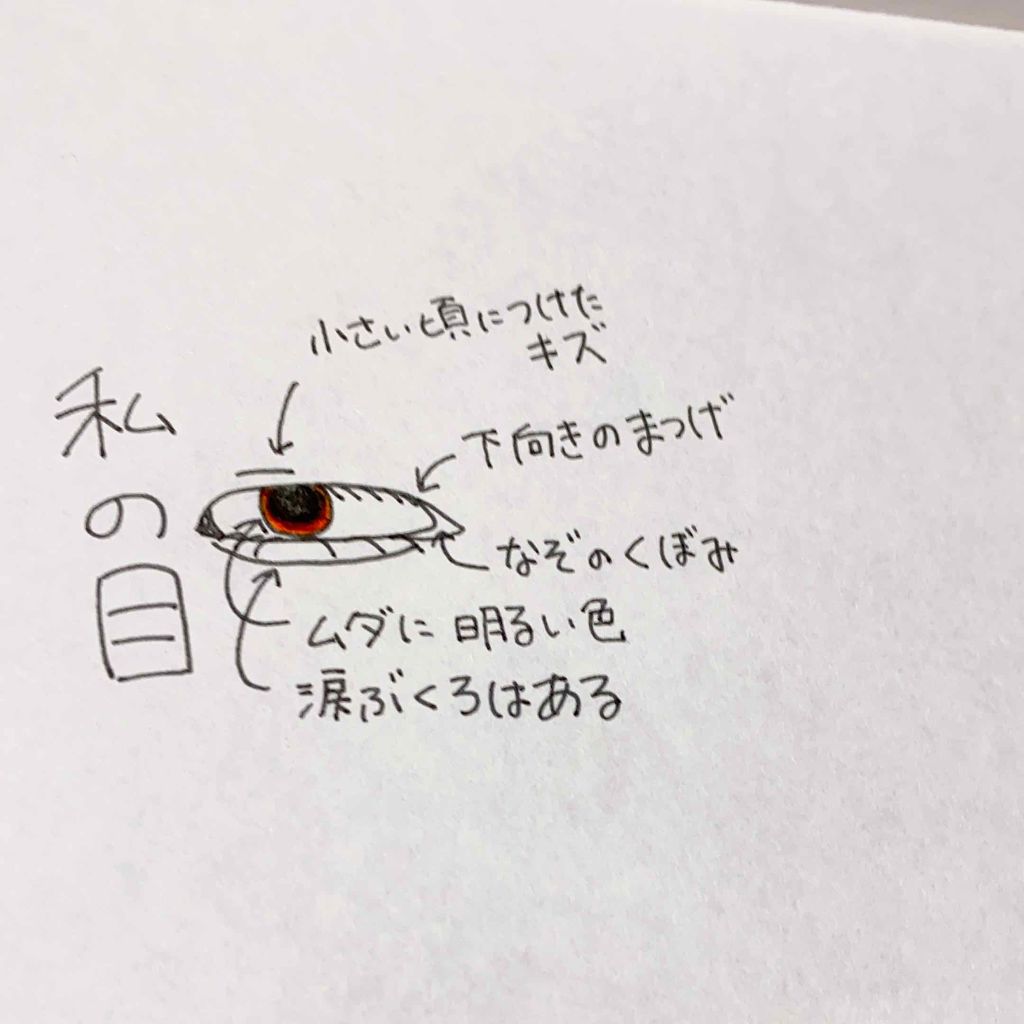 私の目
小さい頃につけた
キズ
下向きのまつげ
なぞのくぼみ
ムダに明るい色
涙ぶくろはある